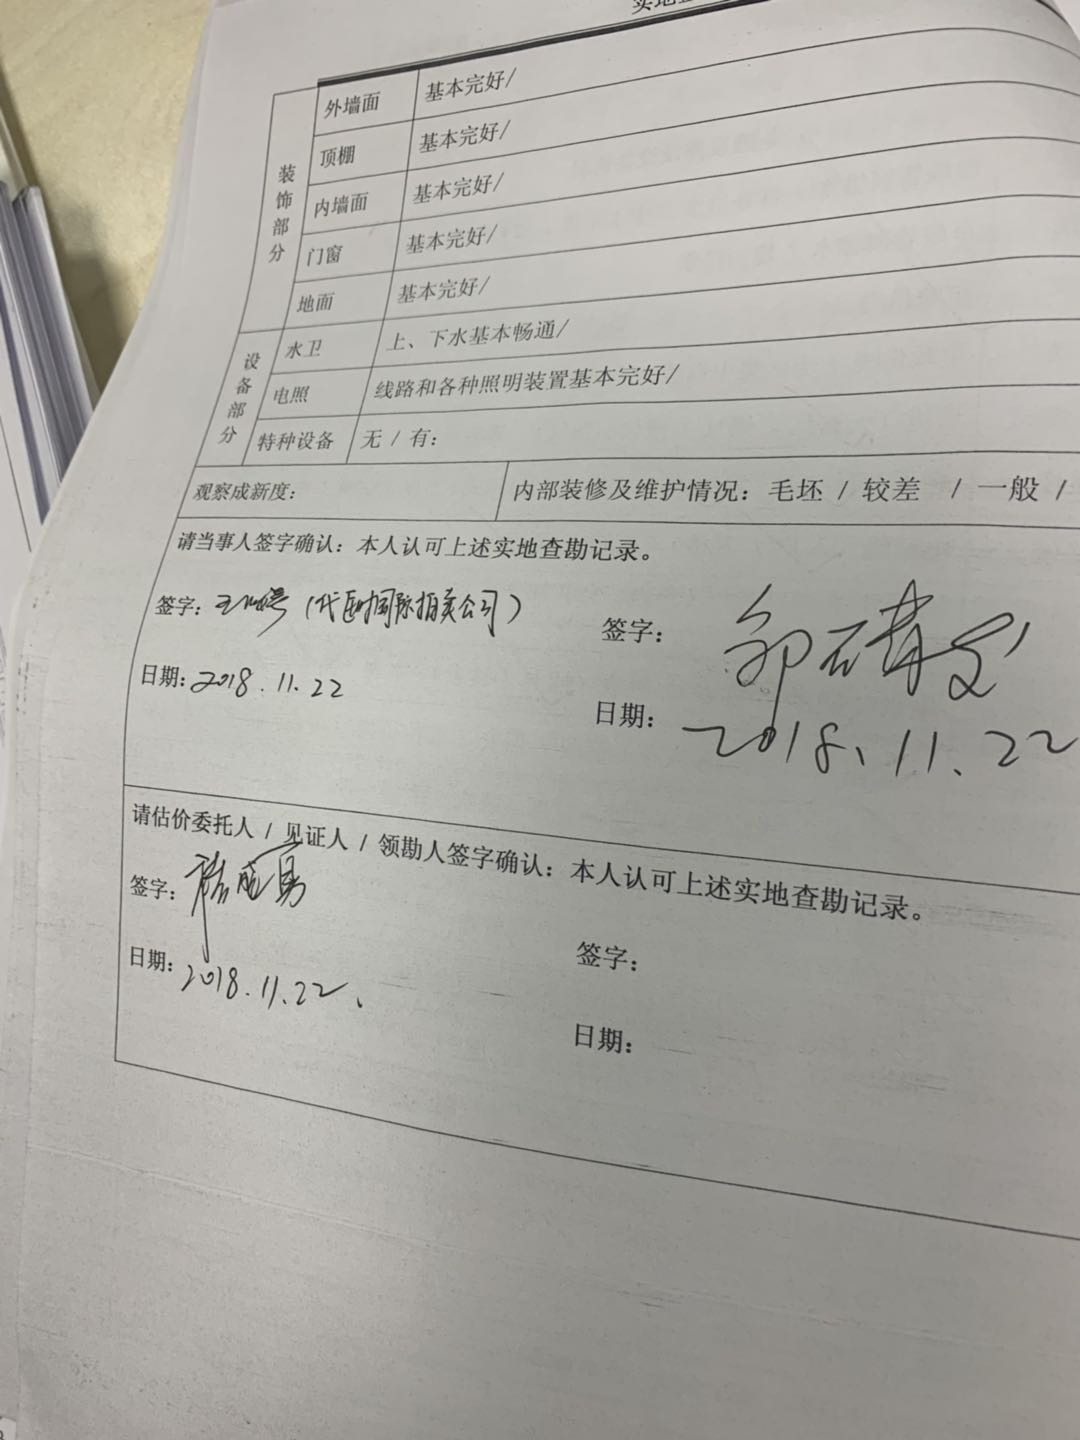 实地查
装饰部分
外墙面 基本完好/
顶棚 基本完好/
内墙面 基本完好/
门窗 基本完好/
地面 基本完好/
设备部分
水卫 上、下水基本畅通/
电照 线路和各种照明装置基本完好/
特种设备 无 / 有：
观察成新度： 内部装修及维护情况：毛坯 / 较差 / 一般 /
请当事人签字确认：本人认可上述实地查勘记录。
签字： 国际拍卖公司）
签字：
日期：2018.11.22
日期：2018、11、22
请估价委托人 / 见证人 / 领勘人签字确认：本人认可上述实地查勘记录。
签字：
签字：
日期：2018.11.22、
日期：